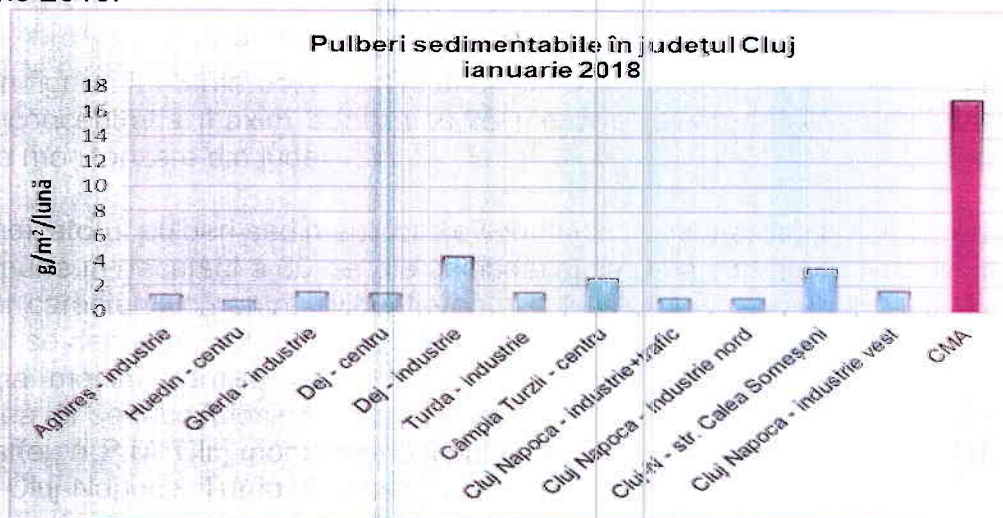 Pulberi sedimentabile în județul Cluj
ianuarie 2018
g/m²/lună
18
16
14
12
10
8
6
4
2
0
Aghireș - industrie
Huedin - centru
Gherla - industrie
Dej - centru
Dej - industrie
Turda - industrie
Câmpia Turzii - centru
Cluj Napoca - industrie+trafic
Cluj Napoca - industrie nord
Cluj-N - str. Calea Someșeni
Cluj Napoca - industrie vest
CMA